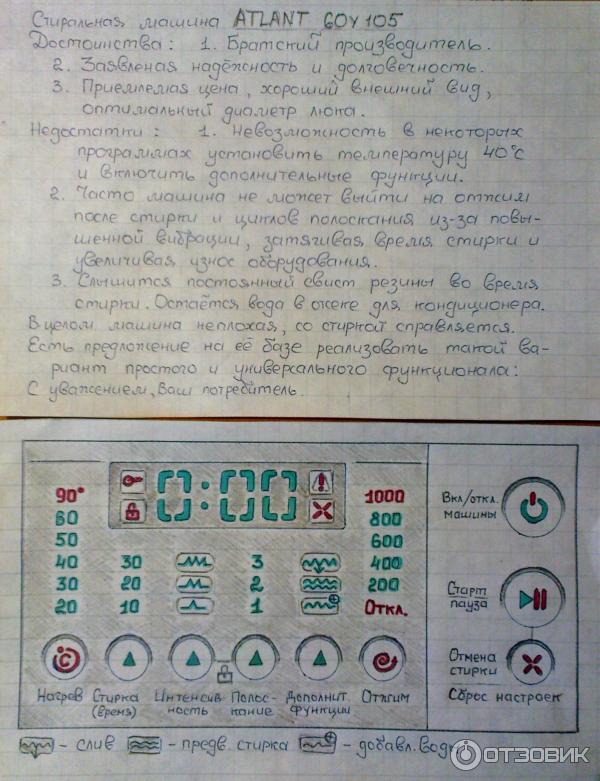 Стиральная машина ATLANT 60У105
Достоинства: 1. Братский производитель.
2. Заявленая надёжность и долговечность.
3. Приемлемая цена, хороший внешний вид,
оптимальный диаметр люка.
Недостатки: 1. Невозможность в некоторых
программах установить температуру 40°С
и включить дополнительные функции.
2. Часто машина не может выйти на отжим
после стирки и циклов полоскания из-за повы-
шенной вибрации, затягивая время стирки и
увеличивая износ оборудования.
3. Слышится постоянный свист резины во время
стирки. Остаётся вода в отсеке для кондиционера.
В целом машина неплохая, со стиркой справляется.
Есть предложение на её базе реализовать такой ва-
риант простого и универсального функционала:
С уважением, Ваш потребитель.
0:00
90° 1000
60 800
50 600
40 30 3 400
30 20 2 200
20 10 1 Откл.
Вкл/откл.
машины
Старт
пауза
Отмена
стирки
Сброс настроек
Нагрев Стирка (время) Интенсив-ность Полос-кание Дополнит. функции Отжим
- слив - предв. стирка - добавл. воды
ОТЗОВИК